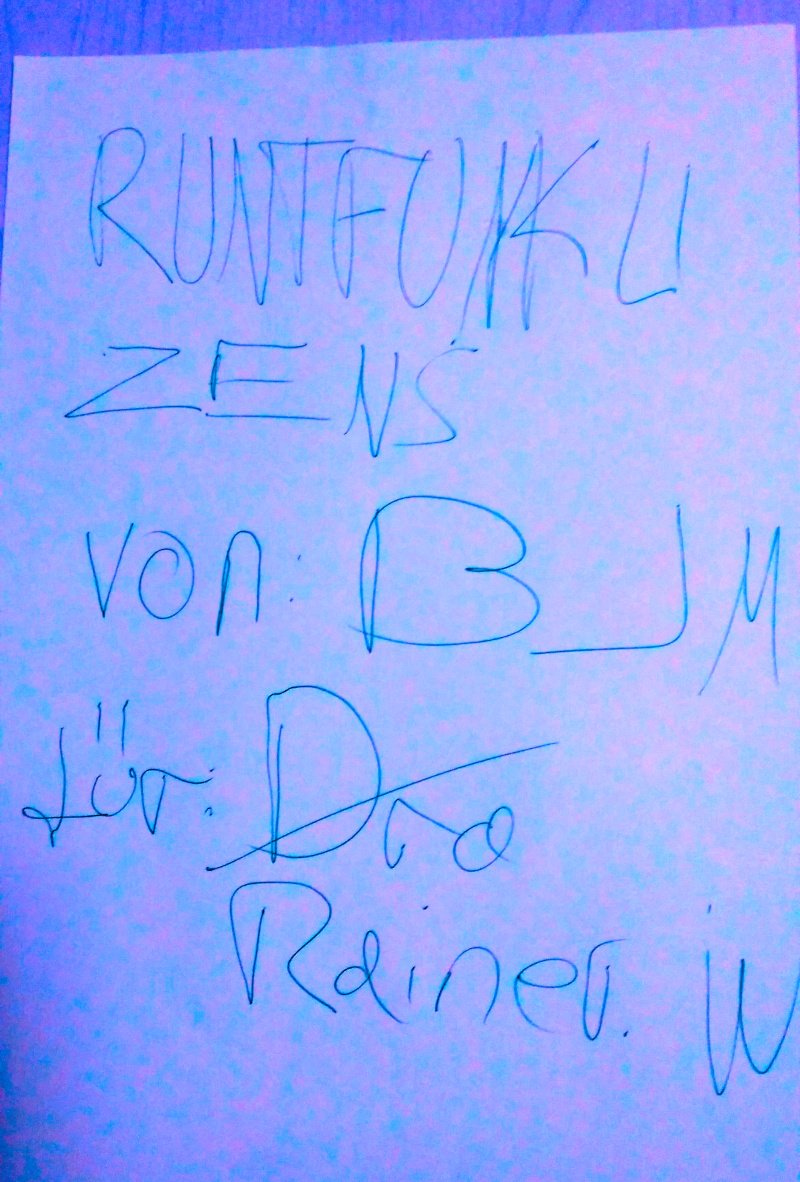 RUNTFUNKLI
ZENS
von: BJM
für: Dro
Rainer. W